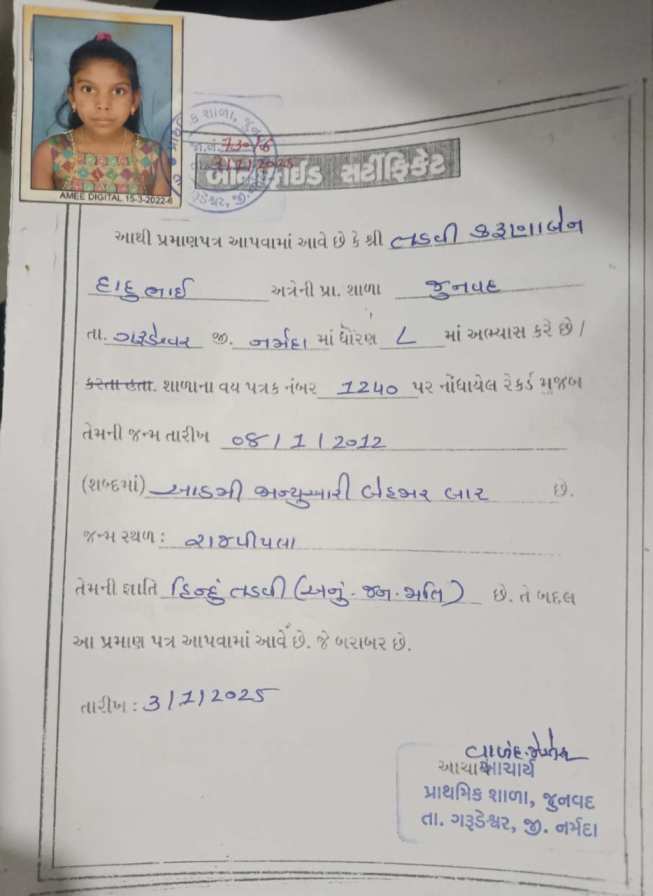 AMEE DIGITAL 15-3-2022-6
730/6
3/7/2025
બોનાફાઈડ સર્ટીફિકેટ
આથી પ્રમાણપત્ર આપવામાં આવે છે કે શ્રી તડવી કરૂણાબેન
દાદુભાઈ અત્રેની પ્રા. શાળા જુનવદ
તા. ગરૂડેશ્વર જી. નર્મદા માં ધોરણ ૮ માં અભ્યાસ કરે છે /
કરતા હતા. શાળાના વય પત્રક નંબર 1240 પર નોંધાયેલ રેકર્ડ મુજબ
તેમની જન્મ તારીખ 08/1/2012
(શબ્દમાં) આઠમી જાન્યુઆરી બેહજાર બાર છે.
જન્મ સ્થળ : રાજપીપલા
તેમની જ્ઞાતિ હિન્દું તડવી (અનું. જન. જાતિ) છે. તે બદલ
આ પ્રમાણ પત્ર આપવામાં આવે છે. જે બરાબર છે.
તારીખ : 3/7/2025
આચાર્ય
પ્રાથમિક શાળા, જુનવદ
તા. ગરૂડેશ્વર, જી. નર્મદા